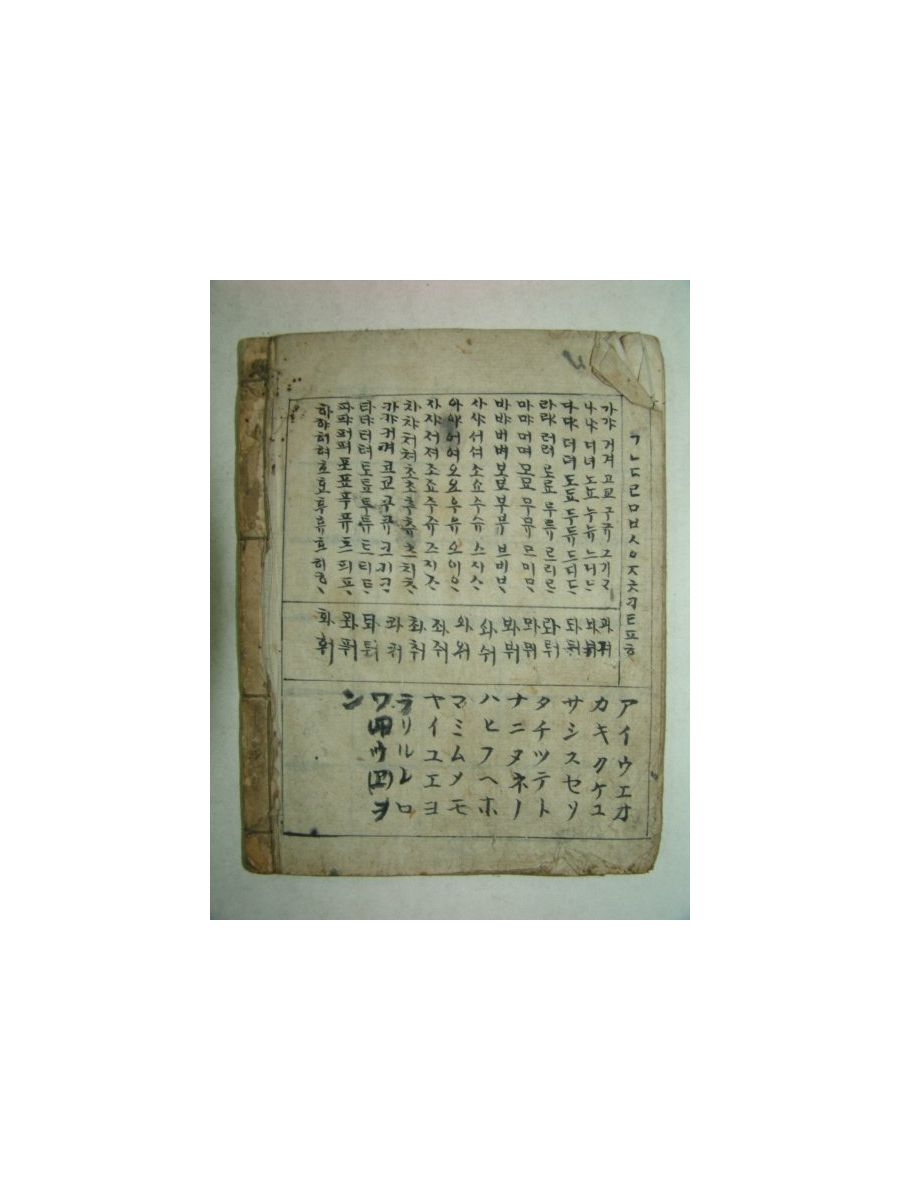 ㄱㄴㄷㄹㅁㅂㅅㅇㅈㅊㅋㅌㅍㅎ
가갸거겨고교구규그기ᄀᆞ
나냐너녀노뇨누뉴느니ᄂᆞ
다댜더뎌도됴두듀드디ᄃᆞ
라랴러려로료루류르리ᄅᆞ
마먀머며모묘무뮤므미ᄆᆞ
바뱌버벼보뵤부뷰브비ᄇᆞ
사샤서셔소쇼수슈스시ᄉᆞ
아야어여오요우유으이ᄋᆞ
자쟈저져조죠주쥬즈지ᄌᆞ
차챠처쳐초쵸추츄츠치ᄎᆞ
카캬커켜코쿄쿠큐크키ᄏᆞ
타탸터텨토툐투튜트티ᄐᆞ
파퍄퍼펴포표푸퓨프피ᄑᆞ
하햐허혀호효후휴흐히ᄒᆞ
과궈
놔눠
돠둬
롸뤄
뫄뭐
봐붜
솨숴
와워
좌줘
촤춰
콰쿼
톼퉈
퐈풔
화훠
アイウエオ
カキクケコ
サシスセソ
タチツテト
ナニヌネノ
ハヒフヘホ
マミムメモ
ヤイユエヨ
ラリルレロ
ワヰウ(ヱ)ヲ
ン